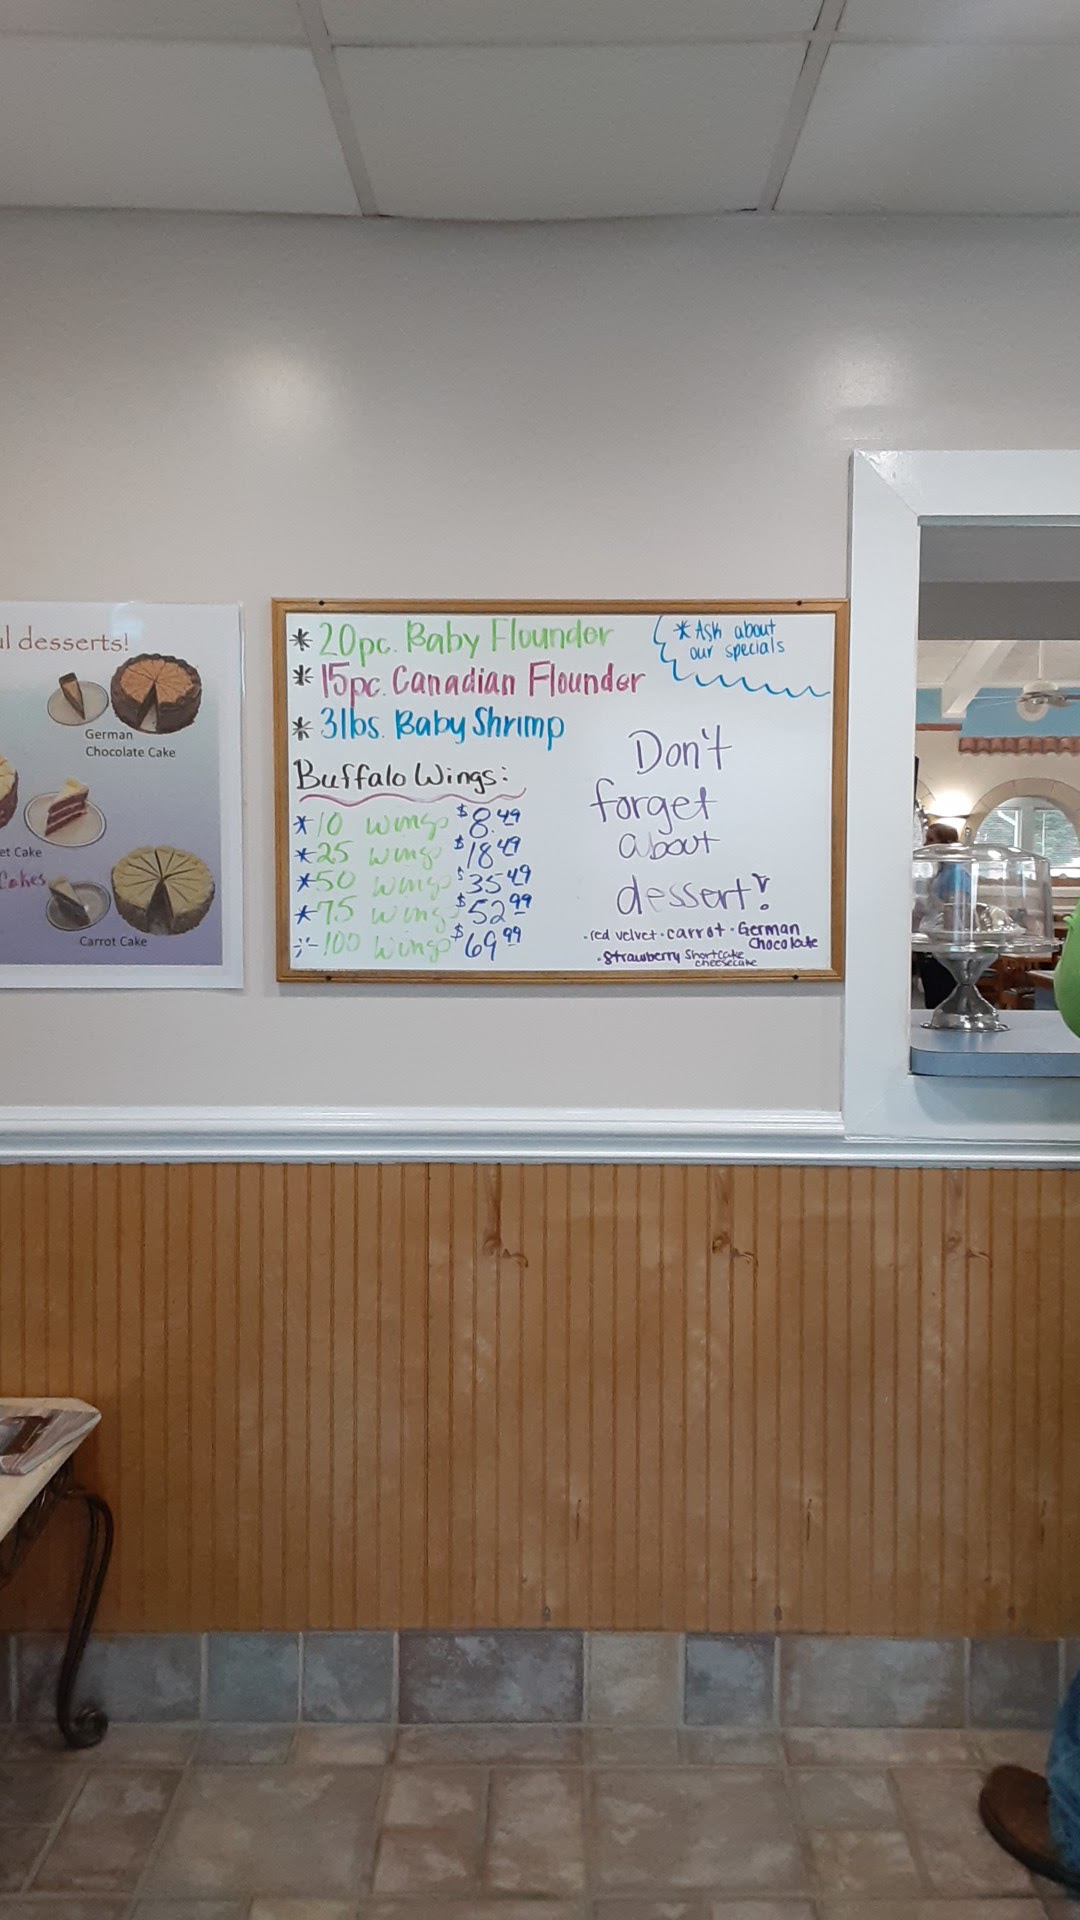 l desserts!
German
Chocolate Cake
et Cake
Cakes
Carrot Cake
* 20pc. Baby Flounder
* 15pc. Canadian Flounder
* 3lbs. Baby Shrimp
Buffalo Wings:
* 10 wings $8.49
* 25 wings $18.49
* 50 wings $35.49
* 75 wings $52.99
* 100 wings $69.99
* Ask about
our specials
Don't
forget
about
dessert!
· red velvet · carrot · German
Chocolate
· Strawberry Shortcake
cheesecake